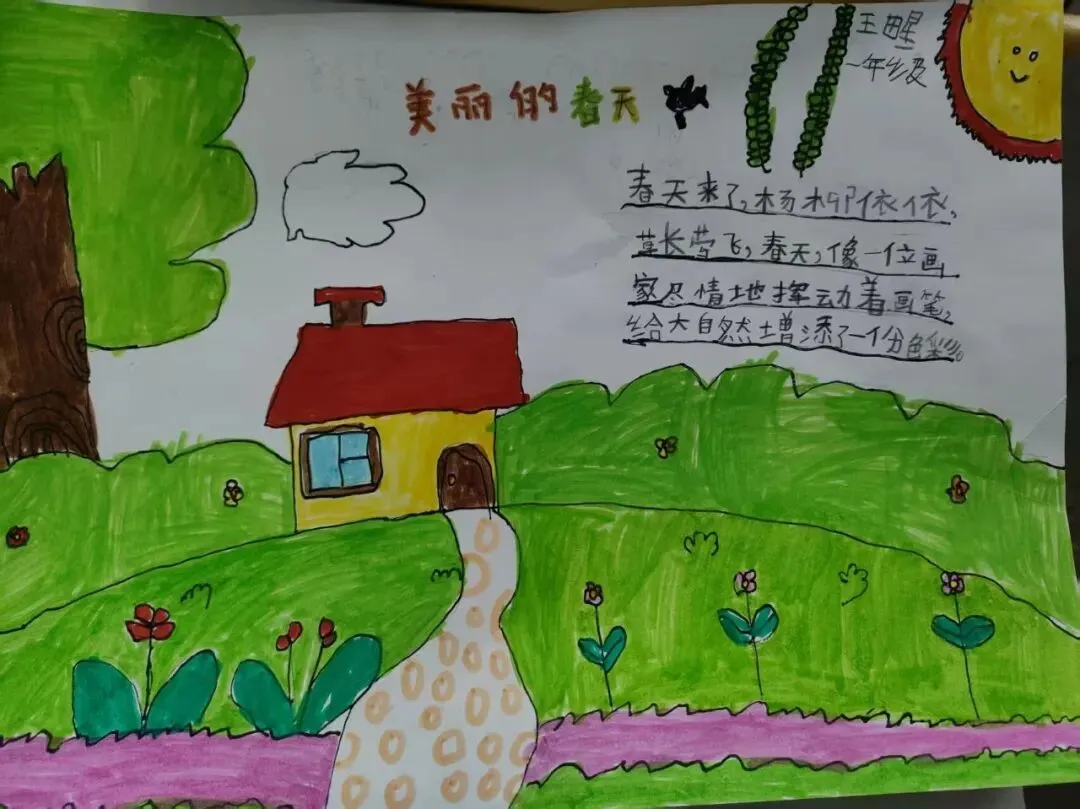 美丽的春天
王
一年级
春天来了,杨柳依依,
草长莺飞,春天,像一位画
家尽情地挥动着画笔,
给大自然增添了一份色彩。